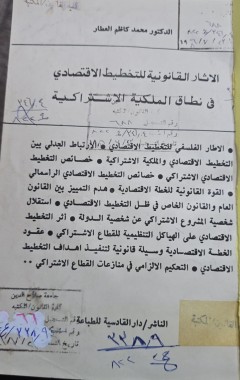 الدكتور محمد كاظم العطار
الاثار القانونية للتخطيط الاقتصادي
في نطاق الملكية الاشتراكية
• الاطار الفلسفي للتخطيط الاقتصادي • الارتباط الجدلي بين
التخطيط الاقتصادي والملكية الاشتراكية • خصائص التخطيط
الاقتصادي الاشتراكي • خصائص التخطيط الاقتصادي الراسمالي
• القوة القانونية للخطة الاقتصادية • هدم التمييز بين القانون
العام والقانون الخاص في ظل التخطيط الاقتصادي • استقلال
شخصية المشروع الاشتراكي عن شخصية الدولة • اثر التخطيط
الاقتصادي على الهياكل التنظيمية للقطاع الاشتراكي • عقود
الخطة الاقتصادية وسيلة قانونية لتنفيذ اهداف التخطيط
الاقتصادي • التحكيم الالزامي في منازعات القطاع الاشتراكي ••
جامعة صلاح الدين
الناشر / دار القادسية للطباعة
٢٢٨٩